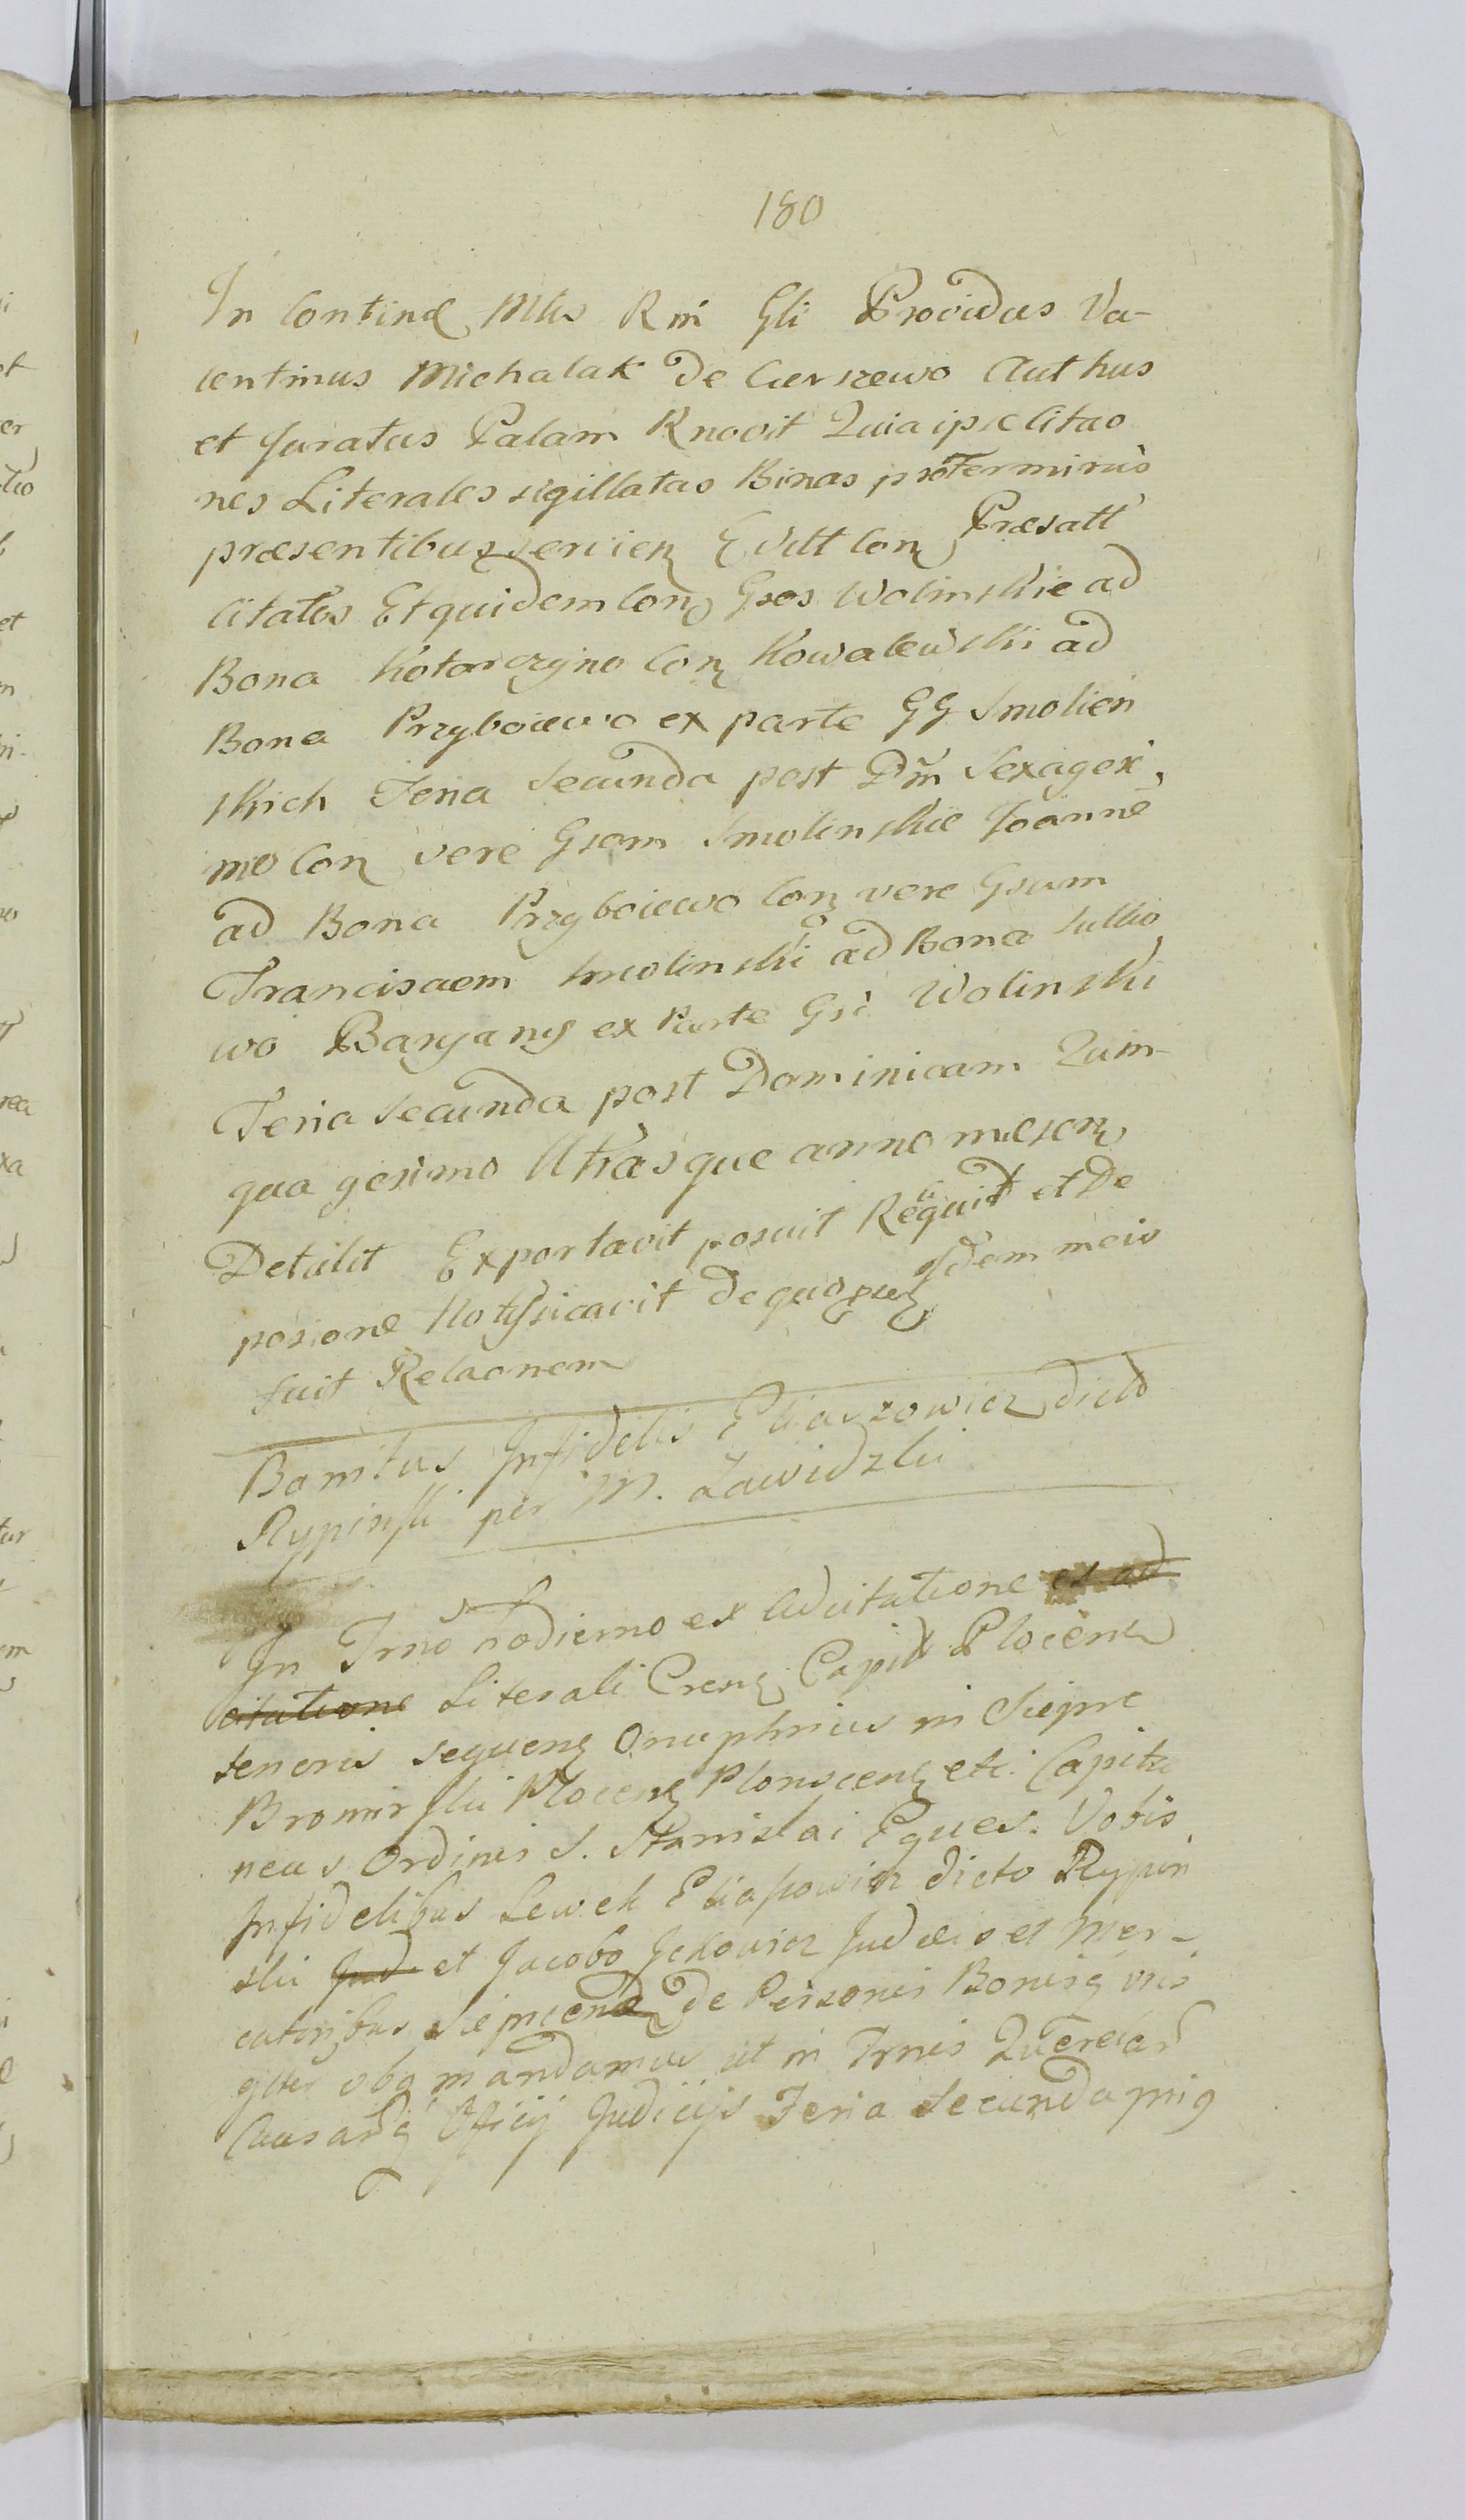 180
In Contine Mtis Rni Gli Providus Va-
lentinus Michalak de Cierszewo Authus
et Juratus Palam Rnovit Quia ipse Citao
nes Literales sigillatas Binas pro Terminis
præsentibus servien Evitt Con Præsatt
Citatos Et quidem Con Gsos Wolinskie ad
Bona Kotarczyno Con Kowalewski ad
Bona Przyboiewo ex parte GG Smolien
skich Feria Secunda post Dm Sexagesi
mo Con vere Gsom Smolinskie Joanne
ad Bona Przyboiewo Con vere Gsum
Franciscum Smolinski ad Bona Sulko
wo Baryany ex Parte Gsi Wolinski
Feria Secunda post Dominicam Quin-
quagesimo Utrasque anno mesen
Detulit Exportavit posuit Reliquit et De
posione Notificavit de quo suq Idem meis
suit Relaonem
Banitus Infidelis Eliaszowicz dicto
Rypinski per M. Zawidzki
In Trno hodierno ex Adcitatione et ad
citatione Literali Cresn Capit Plocens
tenoris sequens Onuphrius in Siepre
Bromirski Plocens Plonscens etc. Capita
neus Ordinis S. Stanislai Eques. Vobis
Infidelibus Lewek Eliaszowicz dicto Rypin
ski Jud et Jacobo Jckowicz Judæis et Mer-
catoribus Siepriens De Personis Bonisq vris
gnter obq mandamus ut in Trnis Querelar
Causarq Officij Judicijs Feria Secunda pria